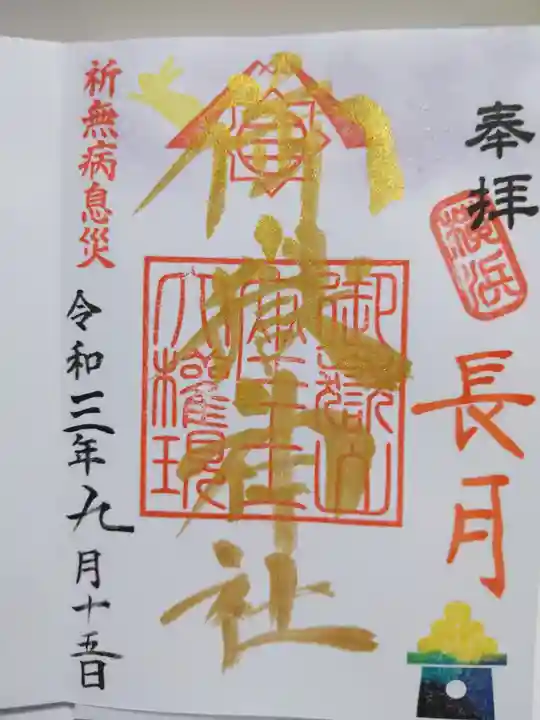 奉拝
横浜
長月
御嶽神社
御嶽山
大権現
祈無病息災
令和三年九月十五日